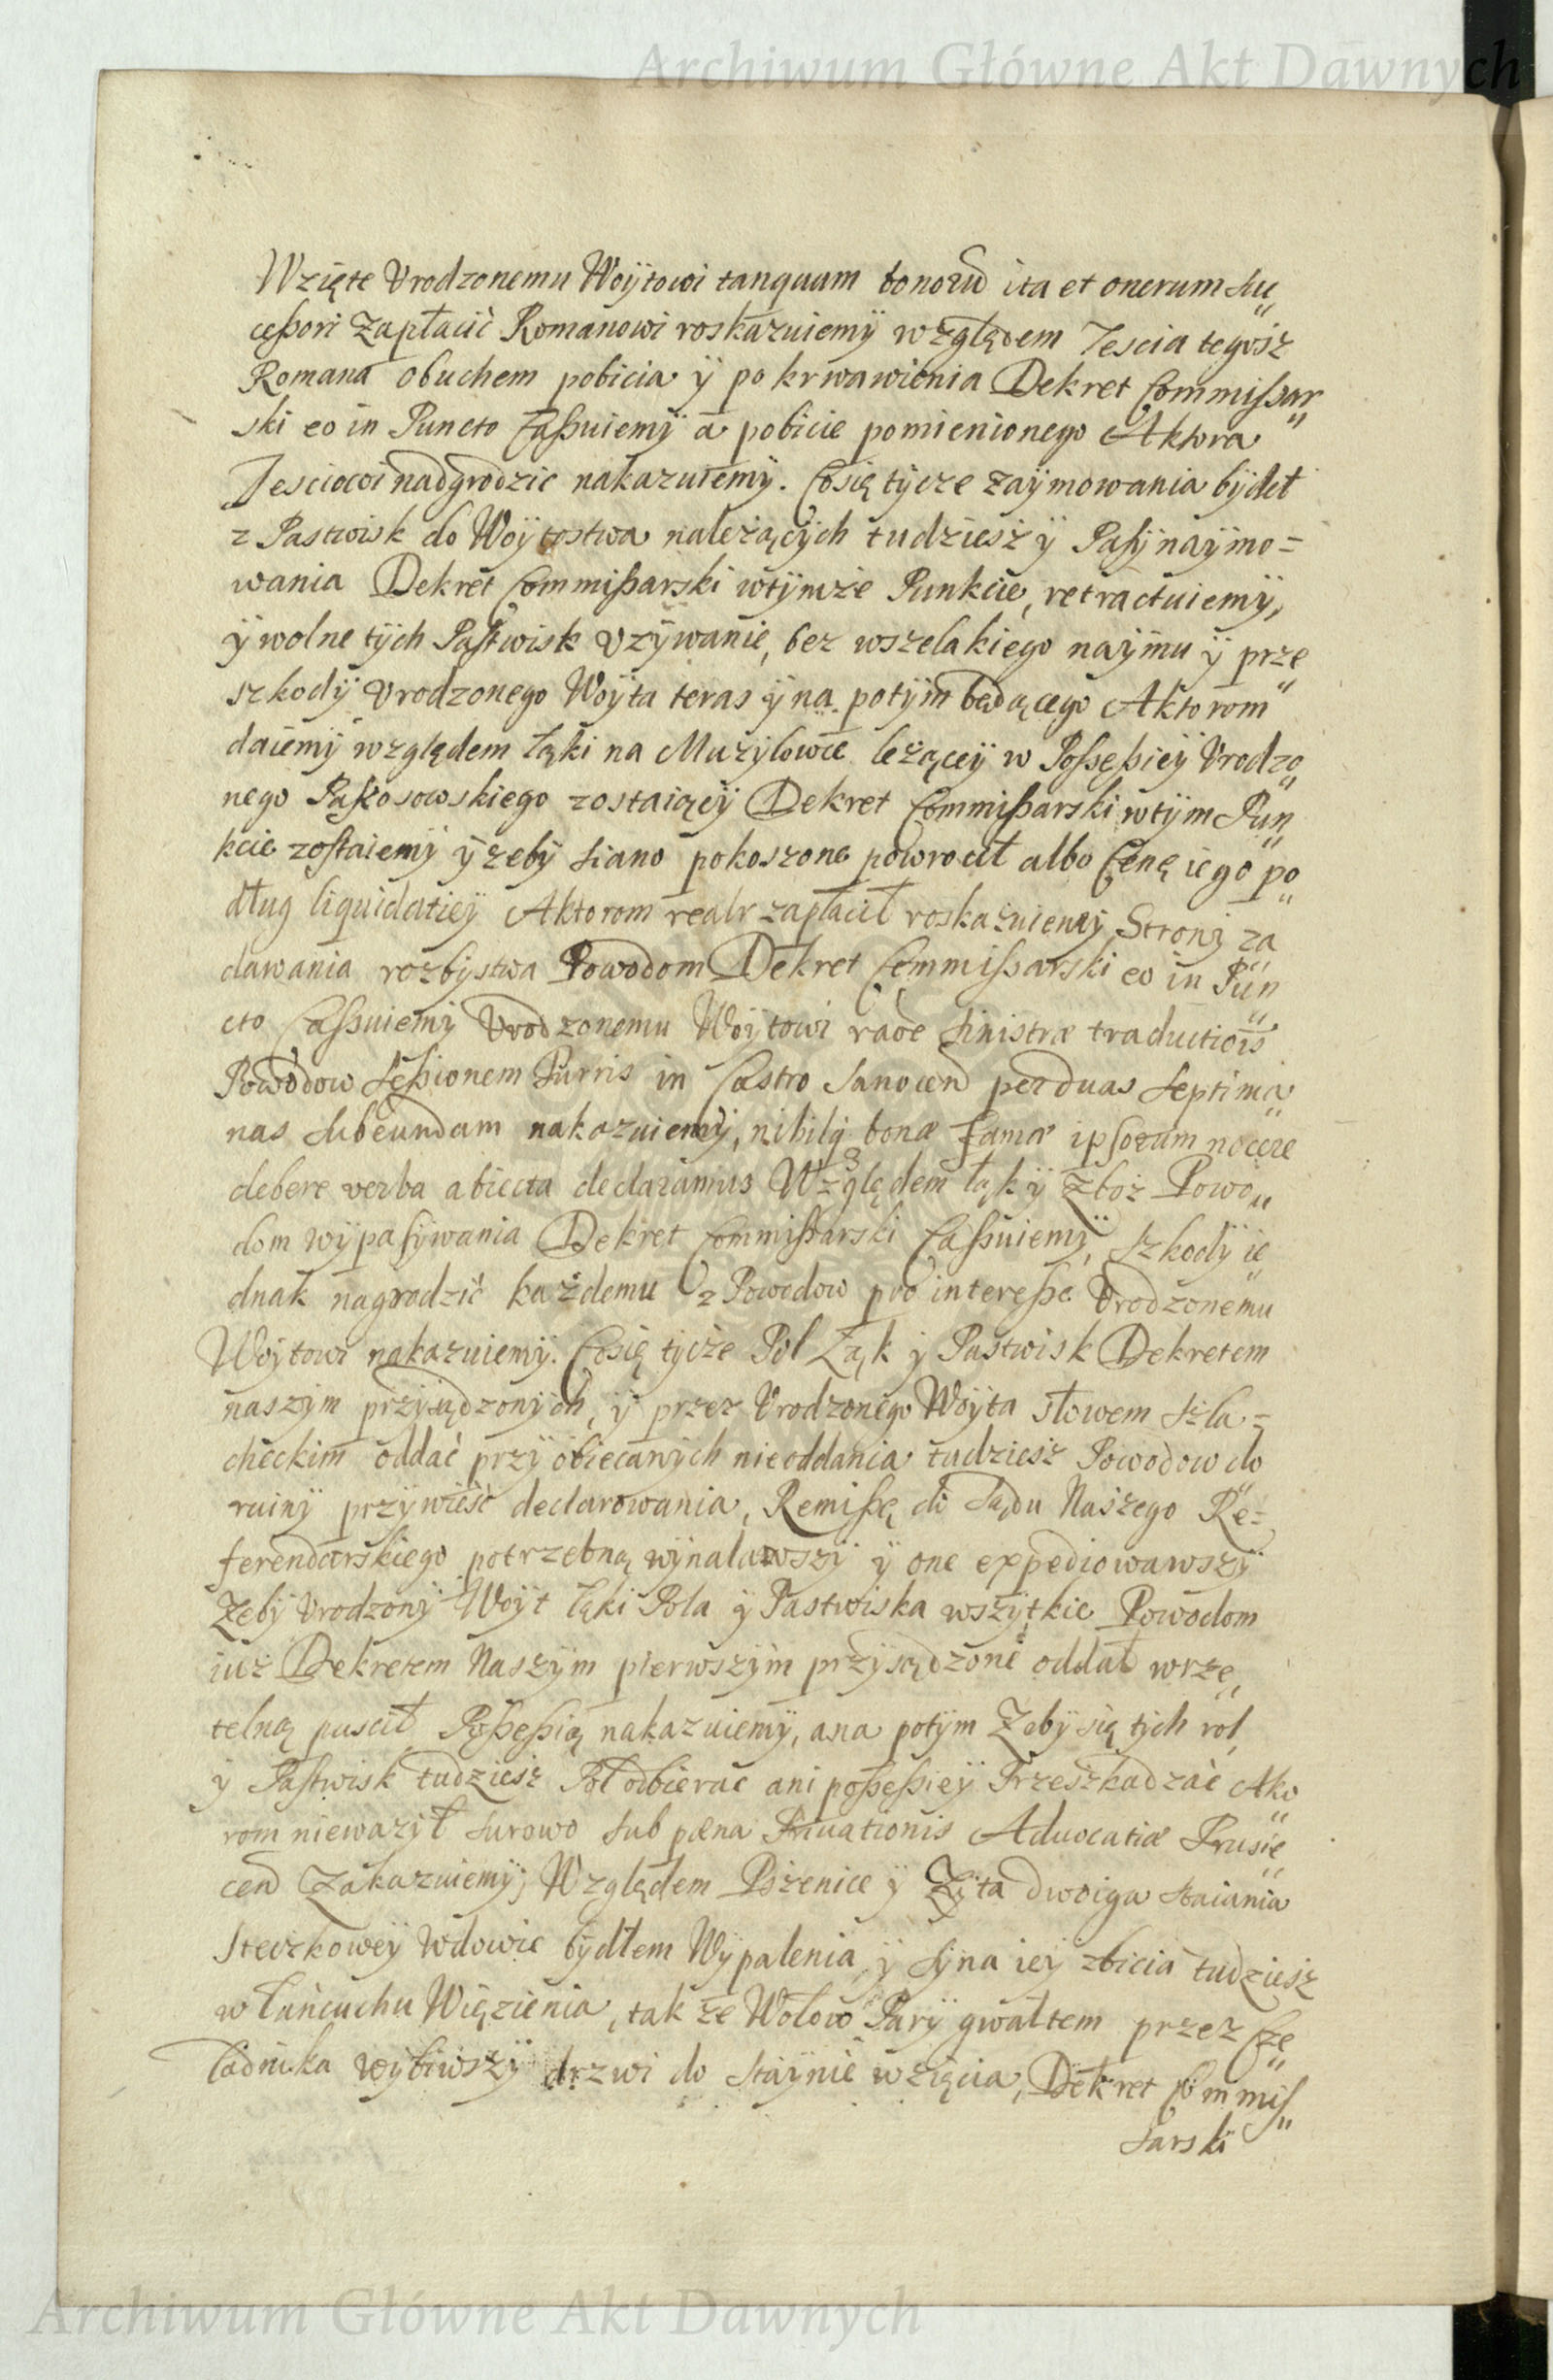 Archiwum Główne Akt Dawnych
Wzięte Vrodzonemu Woÿtowi tanquam bonorū ita et onerum Su„
ceßori Zapłacić Romanowi roskazuiemÿ względem Tescia tegosz
Romana obuchem pobicia ÿ pokrwawienia Dekret Commißar„
ski eo in Puncto Caßuiemÿ a pobicie pomienionego Aktora
Tesciowi nadgrodzić nakazuiemÿ. Cosię tÿcze zaÿmowania bÿdeł
z Pastwisk do Woÿtostwa należącÿch tudziesz ÿ Pasÿ naÿmo=
wania Dekret Commißarski wtÿmże Punkcie, retractuiemÿ,
ÿ wolne tÿch Pastwisk Vzÿwanie, bez wszelakiego naÿmu ÿ prze„
szkodÿ Vrodzonego Woÿta teras ÿ na potÿm będącego Aktorom
daiemÿ względem łąki na Muzÿlowce leżąceÿ w Poßeßieÿ Vrodzo„
nego Pakosowskiego zostaiąceÿ Dekret Commißarski wtÿm Pun„
kcie zostaiemÿ ÿ zebÿ siano pokoszone powrocił albo Cenę iego po„
dług liquidatieÿ Aktorom realr zapłacił roskazuiemÿ Stronÿ za„
dawania rozbÿstwa Powodom Dekret Commißarski eo in Pun„
cto Caßuiemÿ Vrodzonemu Woÿtowi raõe sinistræ traductiõis
Powodow Seßionem Turris in Castro Sanocen̄ per duas septima„
nas subeundam nakazuiemÿ, nihilq̨ bonæ famæ ipsorum nocere
debere verba abiecta declaramus Względem łąk ÿ Zboż Powo„
dom wÿpasÿwania Dekret Commißarski Caßuiemÿ, szkodÿ ie„
dnak nagrodzić każdemu z Powodow pro intereße Vrodzonemu
Woÿtowi nakazuiemÿ. Cosię tÿcże Pol Łąk ÿ Pastwisk Dekretem
naszÿm przÿsądzonÿch, ÿ przez Vrodzonego Woÿta słowem szla=
checkim oddać przÿobiecanÿch nieoddania tudziesz Powodow do
ruinÿ przÿwieść declarowania, Remißę do Sądu Naszego Re=
ferendarskiego potrzebną wÿnalawszÿ ÿ one expediowawszÿ
Zebÿ Vrodzonÿ Woÿt łąki Pola ÿ Pastwiska wszÿtkie Powodom
iuż Dekretem Naszÿm pierwszÿm przÿsądzone oddał wrze„
telną puscił Poßeßią nakazuiemÿ, ana potÿm Zebÿ się tÿch rol
ÿ Pastwisk tudziesz Pol odbierać ani poßeßieÿ Przeszkadzać Akto„
rom nieważÿł surowo sub pæna Priuationis Aduocatiæ Prusie„
cen̄ Zakazuiemÿ; Względem Pszenice ÿ Zÿta dwoiga staiania
Steczkoweÿ Wdowie bÿdłem Wÿpalenia, ÿ sÿna ieÿ zbicia tudziesz
w łańcuchu Więzienia, tak że Wołow Parÿ gwałtem przez Cze„
ladnika wÿbiwszÿ drzwi do staÿnie wzięcia, Dekret Commis„
sarski
Archiwum Główne Akt Dawnych